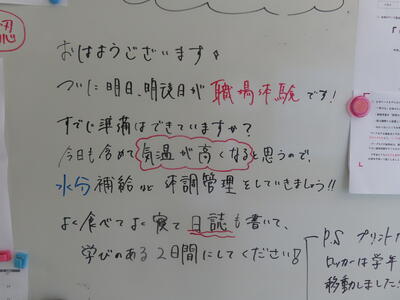 おはようございます♪
ついに明日、明後日が職場体験です!
すでに準備はできていますか?
今日も含めて気温が高くなると思うので、
水分補給など体調管理をしていきましょう!!
よく食べてよく寝て日誌も書いて、
学びのある2日間にしてください!
P.S プリント
ロッカーは学年
移動しました